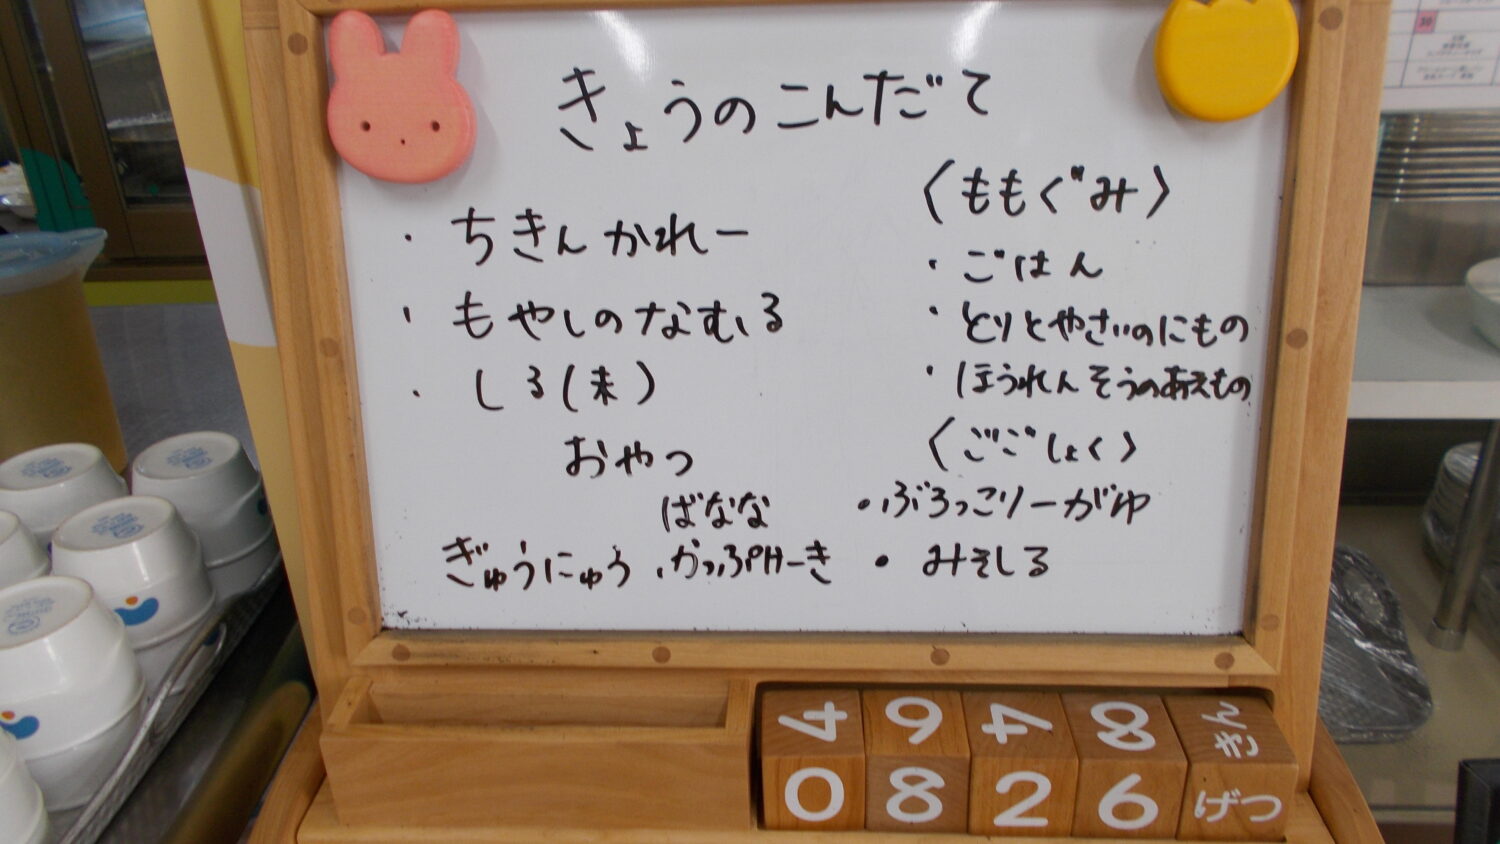 きょうのこんだて
・ちきんかれー
・もやしのなむる
・しる(未)
おやつ
ばなな
ぎゅうにゅう
〈ももぐみ〉
・ごはん
・とりとやさいのにもの
・ほうれんそうのあえもの
〈ごごしょく〉
・ぶろっこりーがゆ
・みそしる
4 6 4 8 きん
0 8 2 6 げつ
30